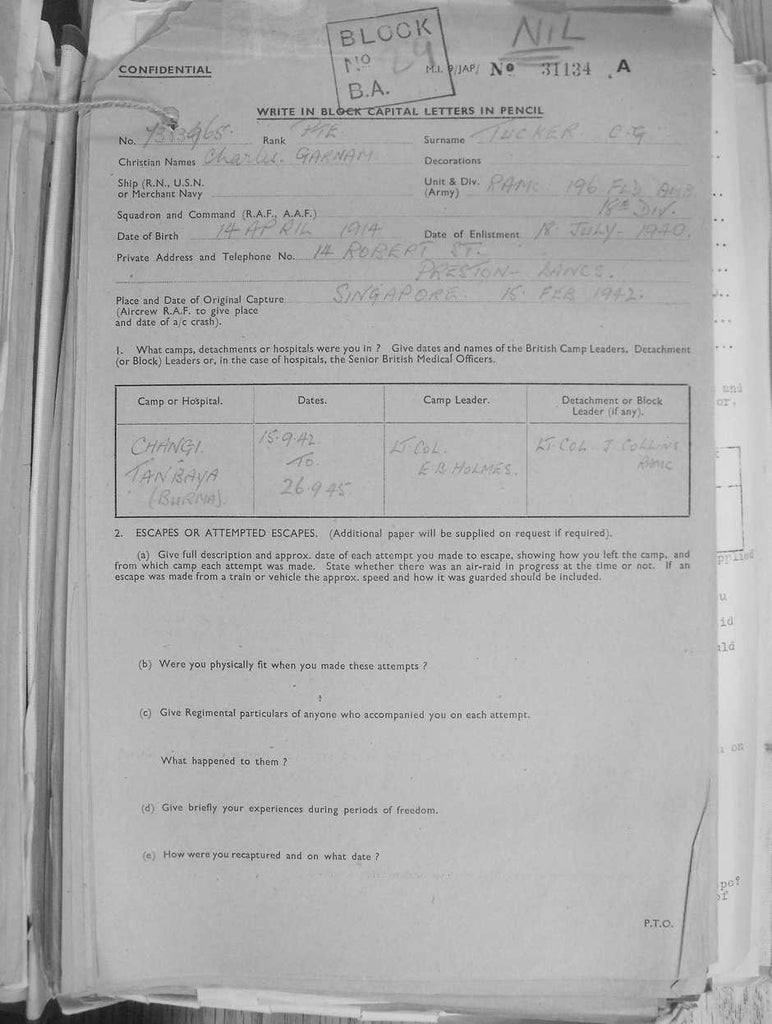 BLOCK
No
B.A.
NIL
CONFIDENTIAL
M.I. 9/JAP/ No 31134 A
WRITE IN BLOCK CAPITAL LETTERS IN PENCIL
No. Rank PTE Surname TUCKER. C.G.
Christian Names Charles. GARNAM Decorations
Ship (R.N., U.S.N. or Merchant Navy Unit & Div. (Army) RAMC 196 FLD AMB
18th DIV.
Squadron and Command (R.A.F., A.A.F.)
Date of Birth 14 APRIL 1914 Date of Enlistment 18 JULY - 1940.
Private Address and Telephone No. 14 ROBERT ST.
PRESTON - LANCS.
Place and Date of Original Capture SINGAPORE. 15 FEB 1942.
(Aircrew R.A.F. to give place
and date of a/c crash).
1. What camps, detachments or hospitals were you in ? Give dates and names of the British Camp Leaders, Detachment
(or Block) Leaders or, in the case of hospitals, the Senior British Medical Officers.
Camp or Hospital. Dates. Camp Leader. Detachment or Block
Leader (if any).
CHANGI. 15.9.42 LT COL. LT. COL J COLLINS
TANBAYA TO E B HOLMES. RAMC
(BURMA). 26.9.45
2. ESCAPES OR ATTEMPTED ESCAPES. (Additional paper will be supplied on request if required).
(a) Give full description and approx. date of each attempt you made to escape, showing how you left the camp, and
from which camp each attempt was made. State whether there was an air-raid in progress at the time or not. If an
escape was made from a train or vehicle the approx. speed and how it was guarded should be included.
(b) Were you physically fit when you made these attempts ?
(c) Give Regimental particulars of anyone who accompanied you on each attempt.
What happened to them ?
(d) Give briefly your experiences during periods of freedom.
(e) How were you recaptured and on what date ?
P.T.O.